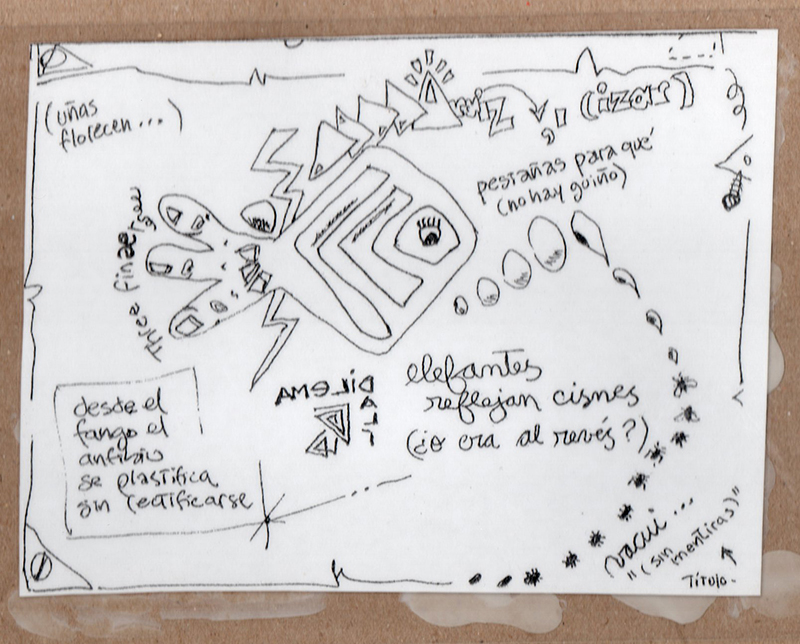 (uñas
florecen...)
(izar)
pestañas para qué
(no hay guiño)
Three fingers
elefantes
reflejan cisnes
(¿o era al revés?)
DILEMA
DALÍ
desde el
fango el
anfibio
se plastifica
sin rectificarse
vacui...
"(sin
mentiras)"
Título.